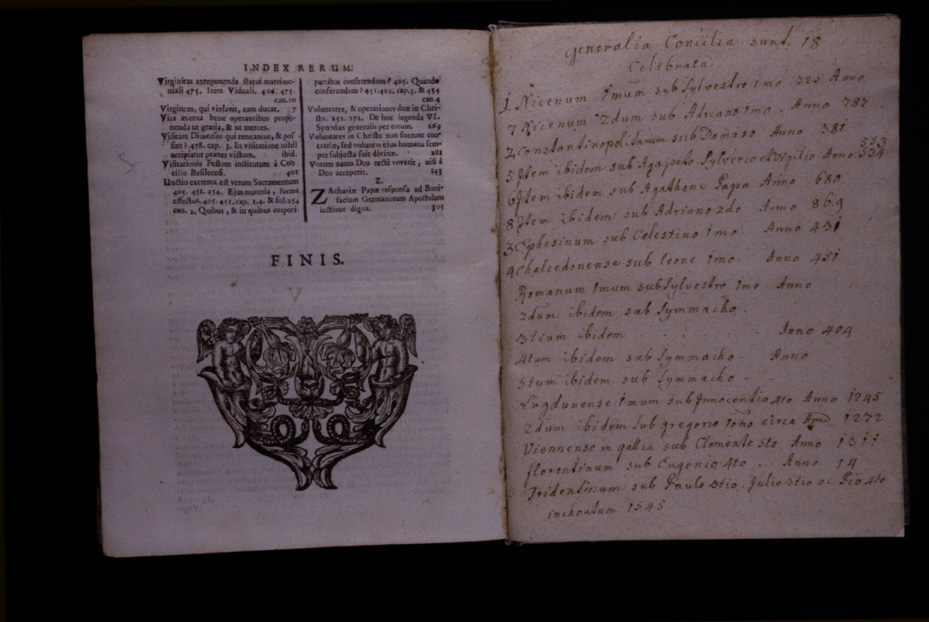 INDEX RERUM.
Virginitas anteponenda statui matrimo-
niali 475. Item Viduali. 406. 475.
can. 10
Virginem, qui violavit, eam ducat. 7
Vita æterna bene operantibus propo-
nenda ut gratia, & ut merces.
Visitare Dioeceses qui teneantur, & pos
sint? 478. cap. 3. In visitatione nihil
accipiatur præter victum. ibid.
Visitationis Festum institutum à Con-
cilio Basileensi. 402
Unctio extrema est verum Sacramentum
405. 451. 454. Ejus materia, forma
effectus. 405. 451. cap. 1. 4. & fol. 254
can. 2. Quibus, & in quibus corpori-
partibus conferendum? 405. Quando
conferendum? 451. 402. cap. 3. & 454
can. 4
Voluntates, & operationes duæ in Chri-
sto. 252. 272. De hoc legenda VI.
Synodus generalis per totum. 269
Voluntates in Christo non fuerunt con-
trariæ, sed voluntas ejus humana sem-
per subjecta fuit divinæ. 281
Votum nemo Deo rectè vovere, nisi à
Deo acceperit. 143
Z.
Zachariæ Papæ responsa ad Boni-
facium Germanorum Apostolum
lectione digna. 305
FINIS.
generalia Concilia sunt 18
Celebrata.
1 Nicenum 1mum sub Sylvestro 1mo 325 Anno
7 Nicenum 2dum sub Adriano 1mo. Anno 787
2 Constantinopolitanum sub Damaso Anno 381
553
5 Item ibidem sub Agapeto Sylverio et Vigilio Anno 534
6 Item ibidem sub Agathone Papa Anno 680
8 Item ibidem sub Adriano 2do Anno 869
3 Ephesinum sub Celestino 1mo. Anno 431
4 Chalcedonense sub leone 1mo. Anno 451
Romanum 1mum sub Sylvestro 1mo Anno
2dum ibidem sub Symmacho.
3tium ibidem Anno 404
4tum ibidem sub Symmacho. Anno
5tum ibidem sub Symmacho - -
Lugdunense 1mum sub Innocentio 4to Anno 1245
2dum ibidem sub gregorio 10mo circa Anno 1272
Viennense in gallia sub Clemente 5to Anno 1311
florentinum sub Eugenio 4to . Anno 14
Tridentinum sub Paulo 3tio. Julio 3tio ac Pio 4to
inchoatum 1545